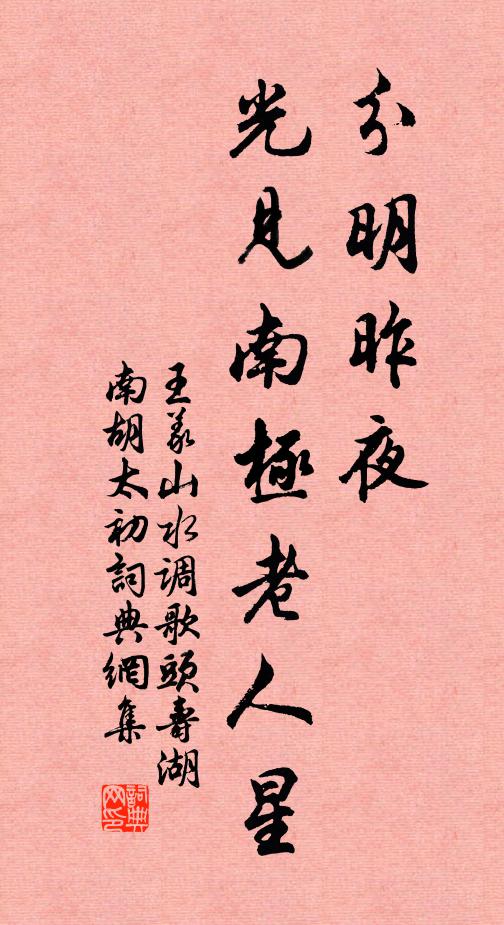 分明昨夜
光見南極老人星
王義山水调歌頭壽湖
南胡太初詞典網集
詞典網印